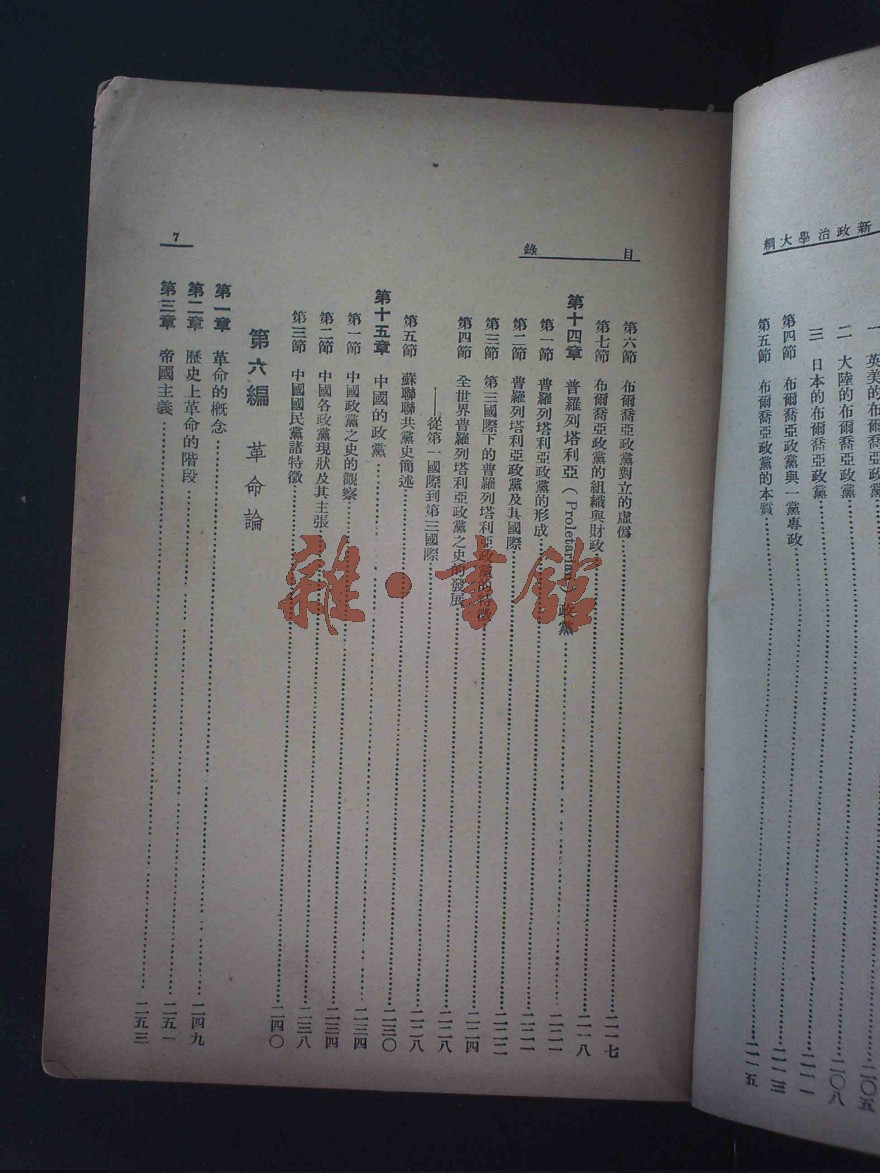 新政治學大綱
一 英美的布爾喬亞政黨 二〇五
二 大陸的布爾喬亞政黨 二〇八
三 日本的布爾喬亞政黨 二一一
第四節 布爾喬亞政黨與一黨專政 二一三
第五節 布爾喬亞政黨的本質 二一五
目錄
7
第六節 布爾喬亞政黨對立的虛僞 二一七
第七節 布爾喬亞政黨的組織與財政 二一八
第十四章 普羅列塔利亞(Proletariat)政黨 二二一
第一節 普羅列塔利亞政黨的形成 二二一
第二節 普羅列塔利亞政黨及其國際 二二二
第三節 第三國際下的普羅列塔利亞政黨的特徵 二二四
第四節 全世界普羅列塔利亞政黨之史的發展 二二八
——從第一國際到第三國際 二二八
第五節 蘇聯聯共黨史簡述 二三〇
第十五章 中國的政黨 二三四
第一節 中國政黨之史的觀察 二三四
第二節 中國各政黨現狀及其主張 二三八
第三節 中國國民黨諸特徵 二四〇
第六編 革命論
第一章 革命的概念 二四九
第二章 歷史上革命的階段 二五一
第三章 帝國主義 二五三
雜·書館